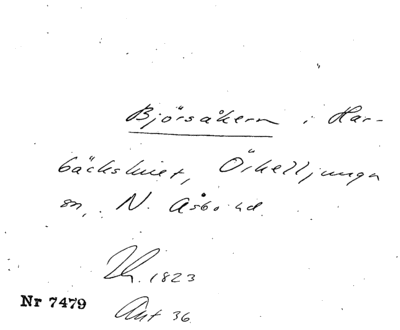 Björsåkern i Har-
bäckshult, Örkelljunga
sn, N. Åsbo hd.
1823
Nr 7479 Ant 36